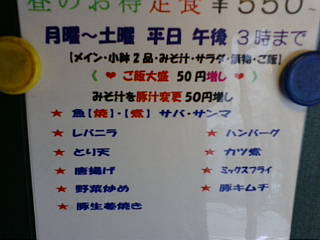 昼のお得定食￥550~
月曜～土曜 平日 午後 3時まで
[メイン・小鉢2品・みそ汁・サラダ・漬物・ご飯]
( ♥ ご飯大盛 50円増し ♥ )
みそ汁を豚汁変更 50円増し
★ 魚【焼】・【煮】 サバ・サンマ
★ レバニラ ★ ハンバーグ
★ とり天 ★ カツ煮
★ 唐揚げ ★ ミックスフライ
★ 野菜炒め ★ 豚キムチ
★ 豚生姜焼き